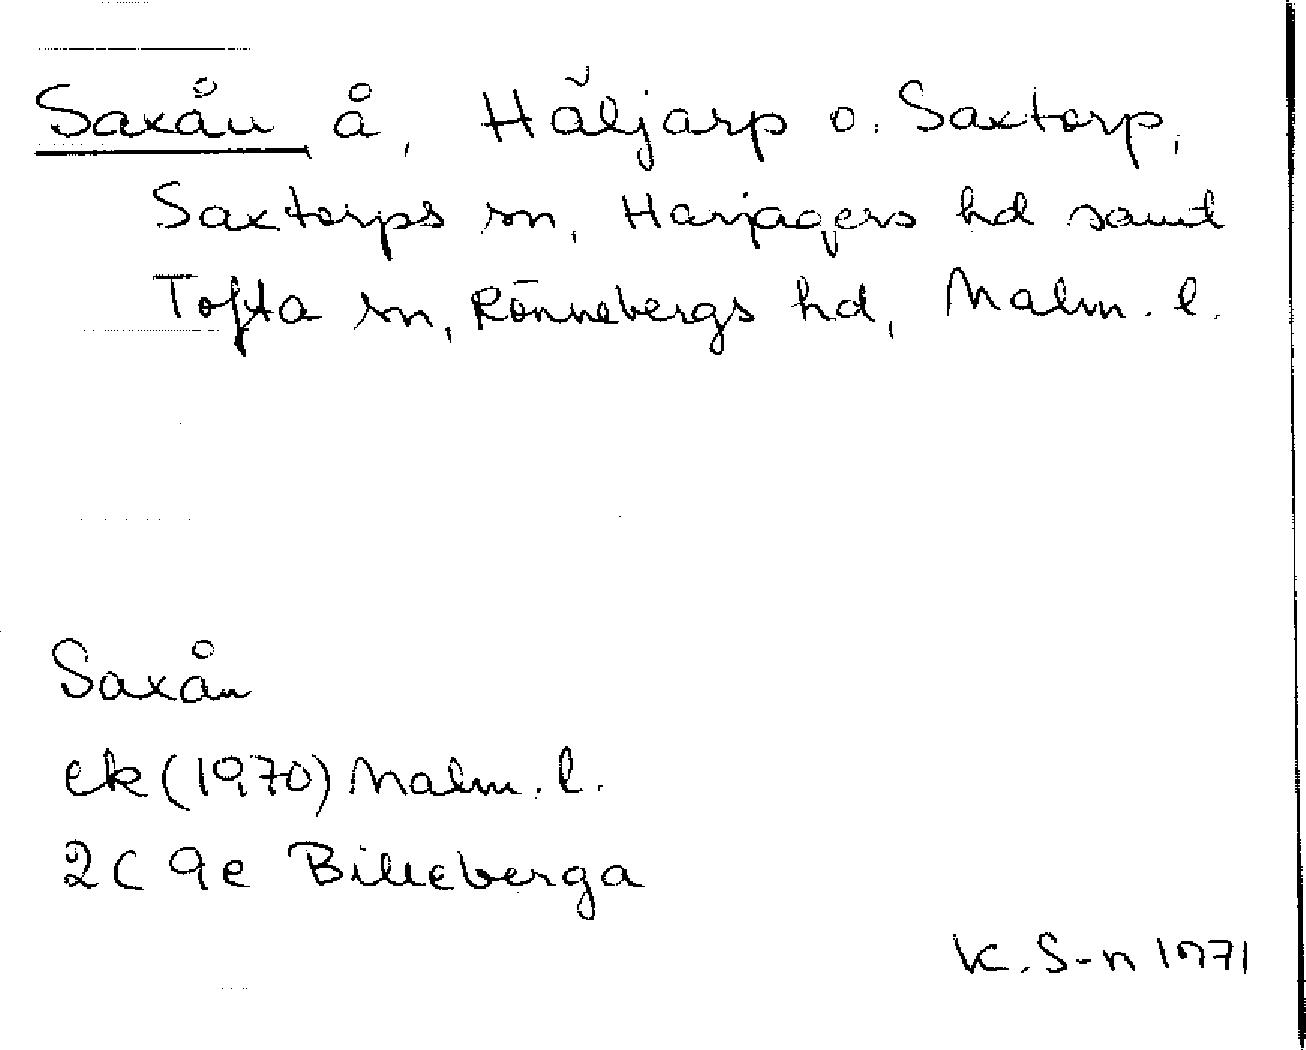 Saxån å, Häljarp o. Saxtorp,
Saxtorps sn, Harjagers hd samt
Tofta sn, Rönnebergs hd, Malm. l.
Saxån
ek (1970) Malm. l.
2C 9e Billeberga
K. S-n 1971